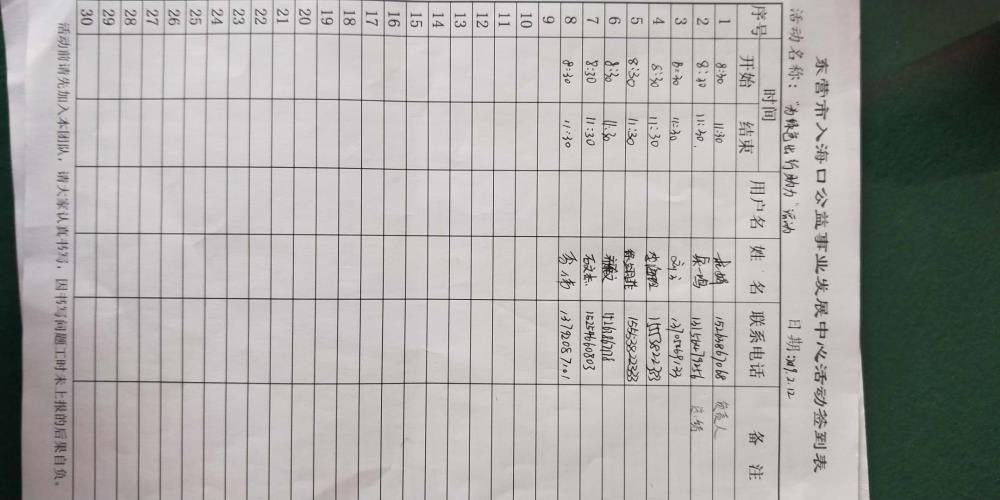 东营市入海口公益事业发展中心活动签到表
活动名称：“为绿色出行助力”活动 日期：2019.2.12
序号 时间 用户名 姓名 联系电话 备注
开始 结束
1 8:30 11:30 负责人
2 8:30 11:30.
3 8:30 11:30
4 8:30 11:30 15553822333
5 8:30 11:30 15553822333
6 8:30 11:30
7 8:30 11:30 石文杰 15254660803
8 8:30 11:30 李伟 13792087101
9
10
11
12
13
14
15
16
17
18
19
20
21
22
23
24
25
26
27
28
29
30
活动前请先加入本团队，请大家认真书写，因书写问题工时未上报的后果自负。